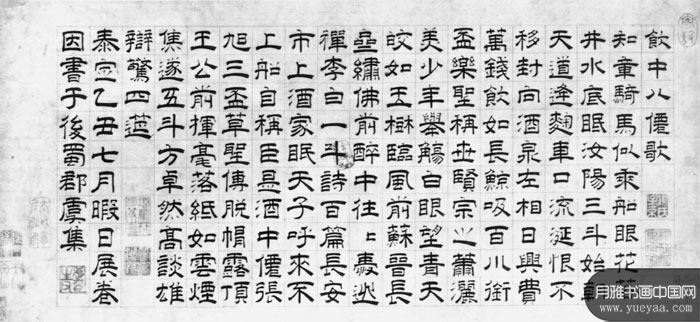 飲中八僊歌
知章騎馬似乘船眼花
井水底眠汝陽三斗始朝
天道逢麴車口流涎恨不
移封向酒泉左相日興費
萬錢飲如長鯨吸百川銜
盃樂聖稱世賢宗之蕭灑
美少年舉觴白眼望青天
皎如玉樹臨風前蘇晉長
齋繡佛前醉中往〻愛逃
禪李白一斗詩百篇長安
市上酒家眠天子呼來不
上船自稱臣是酒中僊張
旭三盃草聖傳脫帽露頂
王公前揮毫落紙如雲煙
焦遂五斗方卓然高談雄
辯驚四筵
泰定乙丑七月暇日展卷
因書于後蜀郡虞集
月雅书画中国网
www.yueyaa.com